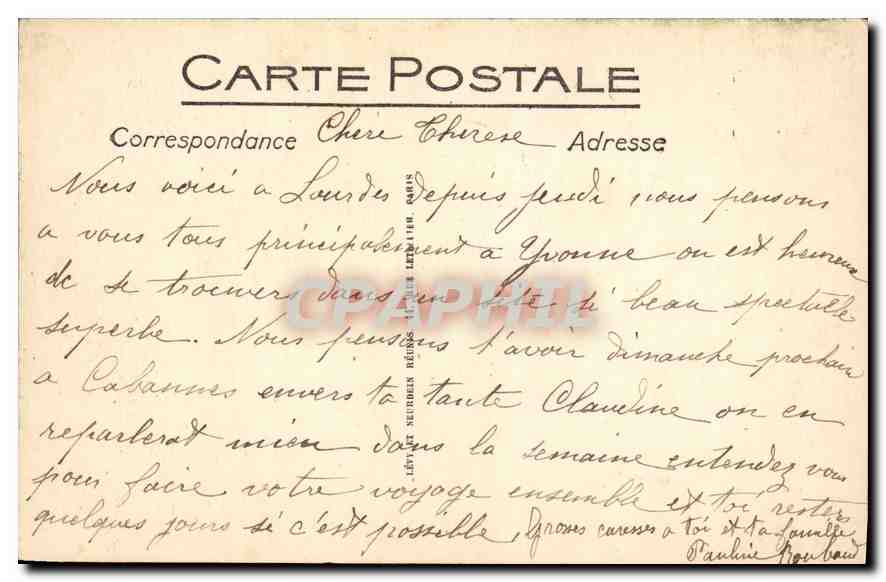 CARTE POSTALE
Correspondance Chère Therese Adresse
Nous voici a Lourdes depuis jeudi, nous pensons
a vous tous principalement a Yvonne on est heureux
de se trouvers dans un site si beau spectacle
superbe. Nous pensons t'avoir dimanche prochain
a Cabannes envers ta tante Claudine on en
reparlerat mieu dans la semaine entendez vous
pour faire votre voyage ensemble et toi resters
quelques jours si c'est possible, Grosses caresses a toi et ta famille
Pauline Roubaud
LÉVY ET NEURDEIN RÉUNIS, 44, RUE LETELLIER, PARIS
CPAPHIL